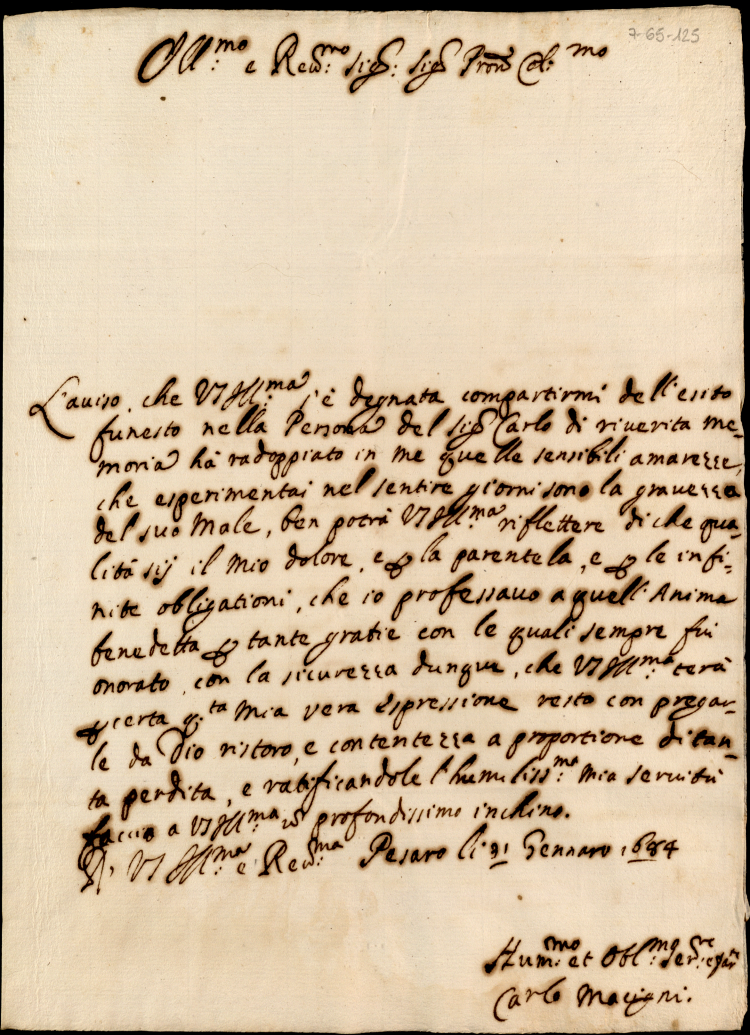 7-65-125
Ill:mo e Reu:mo Sig: Sig Pron Col:mo
L'auiso, che VS Ill:ma s'è degnata compartirmi dell'esito
funesto nella Persona del Sig Carlo di riuerita me-
moria hà radoppiato in me quelle sensibili amarezze,
che esperimentai nel sentire giorni sono la grauezza
del suo Male, ben potrà VS Ill:ma riflettere di che qua-
lità sij il mio dolore, e p la parentela, e p le infi-
nite obligationi, che io professauo a quell'Anima
benedetta p tante gratie con le quali sempre fui
onorato, con la sicurezza dunque, che VS Ill:ma terà
p certa q:ta mia vera espressione resto con pregar-
le da Dio ristoro, e contentezza a proportione di tan-
ta perdita, e ratificandole l'humiliss:ma mia seruitù
faccio a VS Ill:ma profondissimo inchino.
D' VS Ill:ma e Reu:ma Pesaro li 31 Gennaro 1684
Hum:mo et Obl:mo Ser:re
Carlo